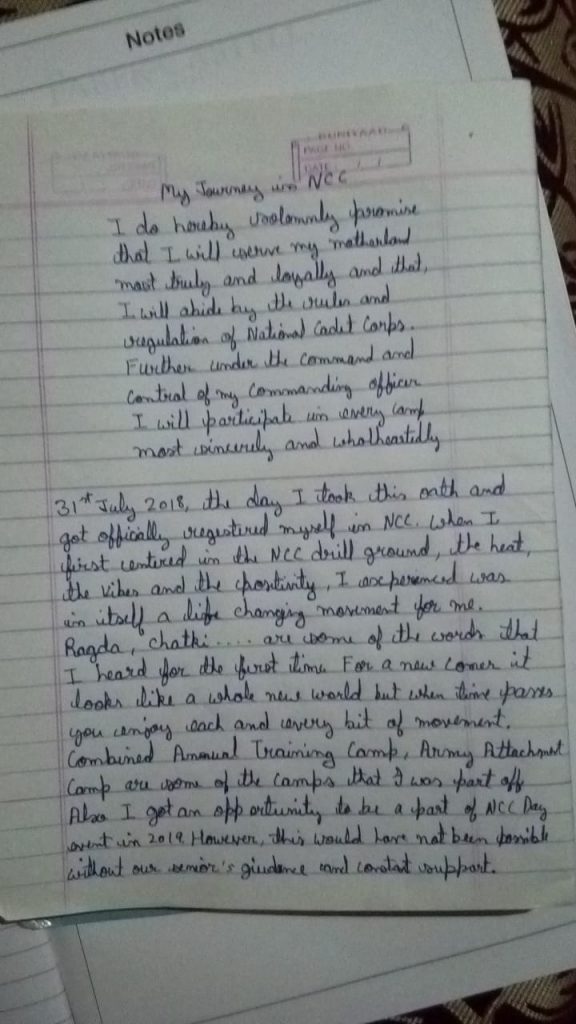 Notes
BUNIYAAD
PAGE NO.
DATE: / /
My Journey in NCC
I do hereby solemnly promise
that I will serve my motherland
most truly and loyally and that,
I will abide by the rules and
regulation of National Cadet Corps.
Further under the command and
control of my commanding officer
I will participate in every camp
most sincerely and wholheartidly
31st July 2018, the day I took this oath and
got officially regestired myself in NCC. When I
first entired in the NCC drill ground, the heat,
the vibes and the positivity, I experienced was
in itself a life changing movement for me.
Ragda, Chatki .... are some of the words that
I heard for the first time. For a new comer it
looks like a whole new world but when time passes
you enjoy each and every bit of movement.
Combined Annual Training Camp, Army Attachment
Camp are some of the camps that I was part off
Also I got an opportunity to be a part of NCC Day
event in 2019. However, this would have not been possible
without our senior's giudance and constant support.